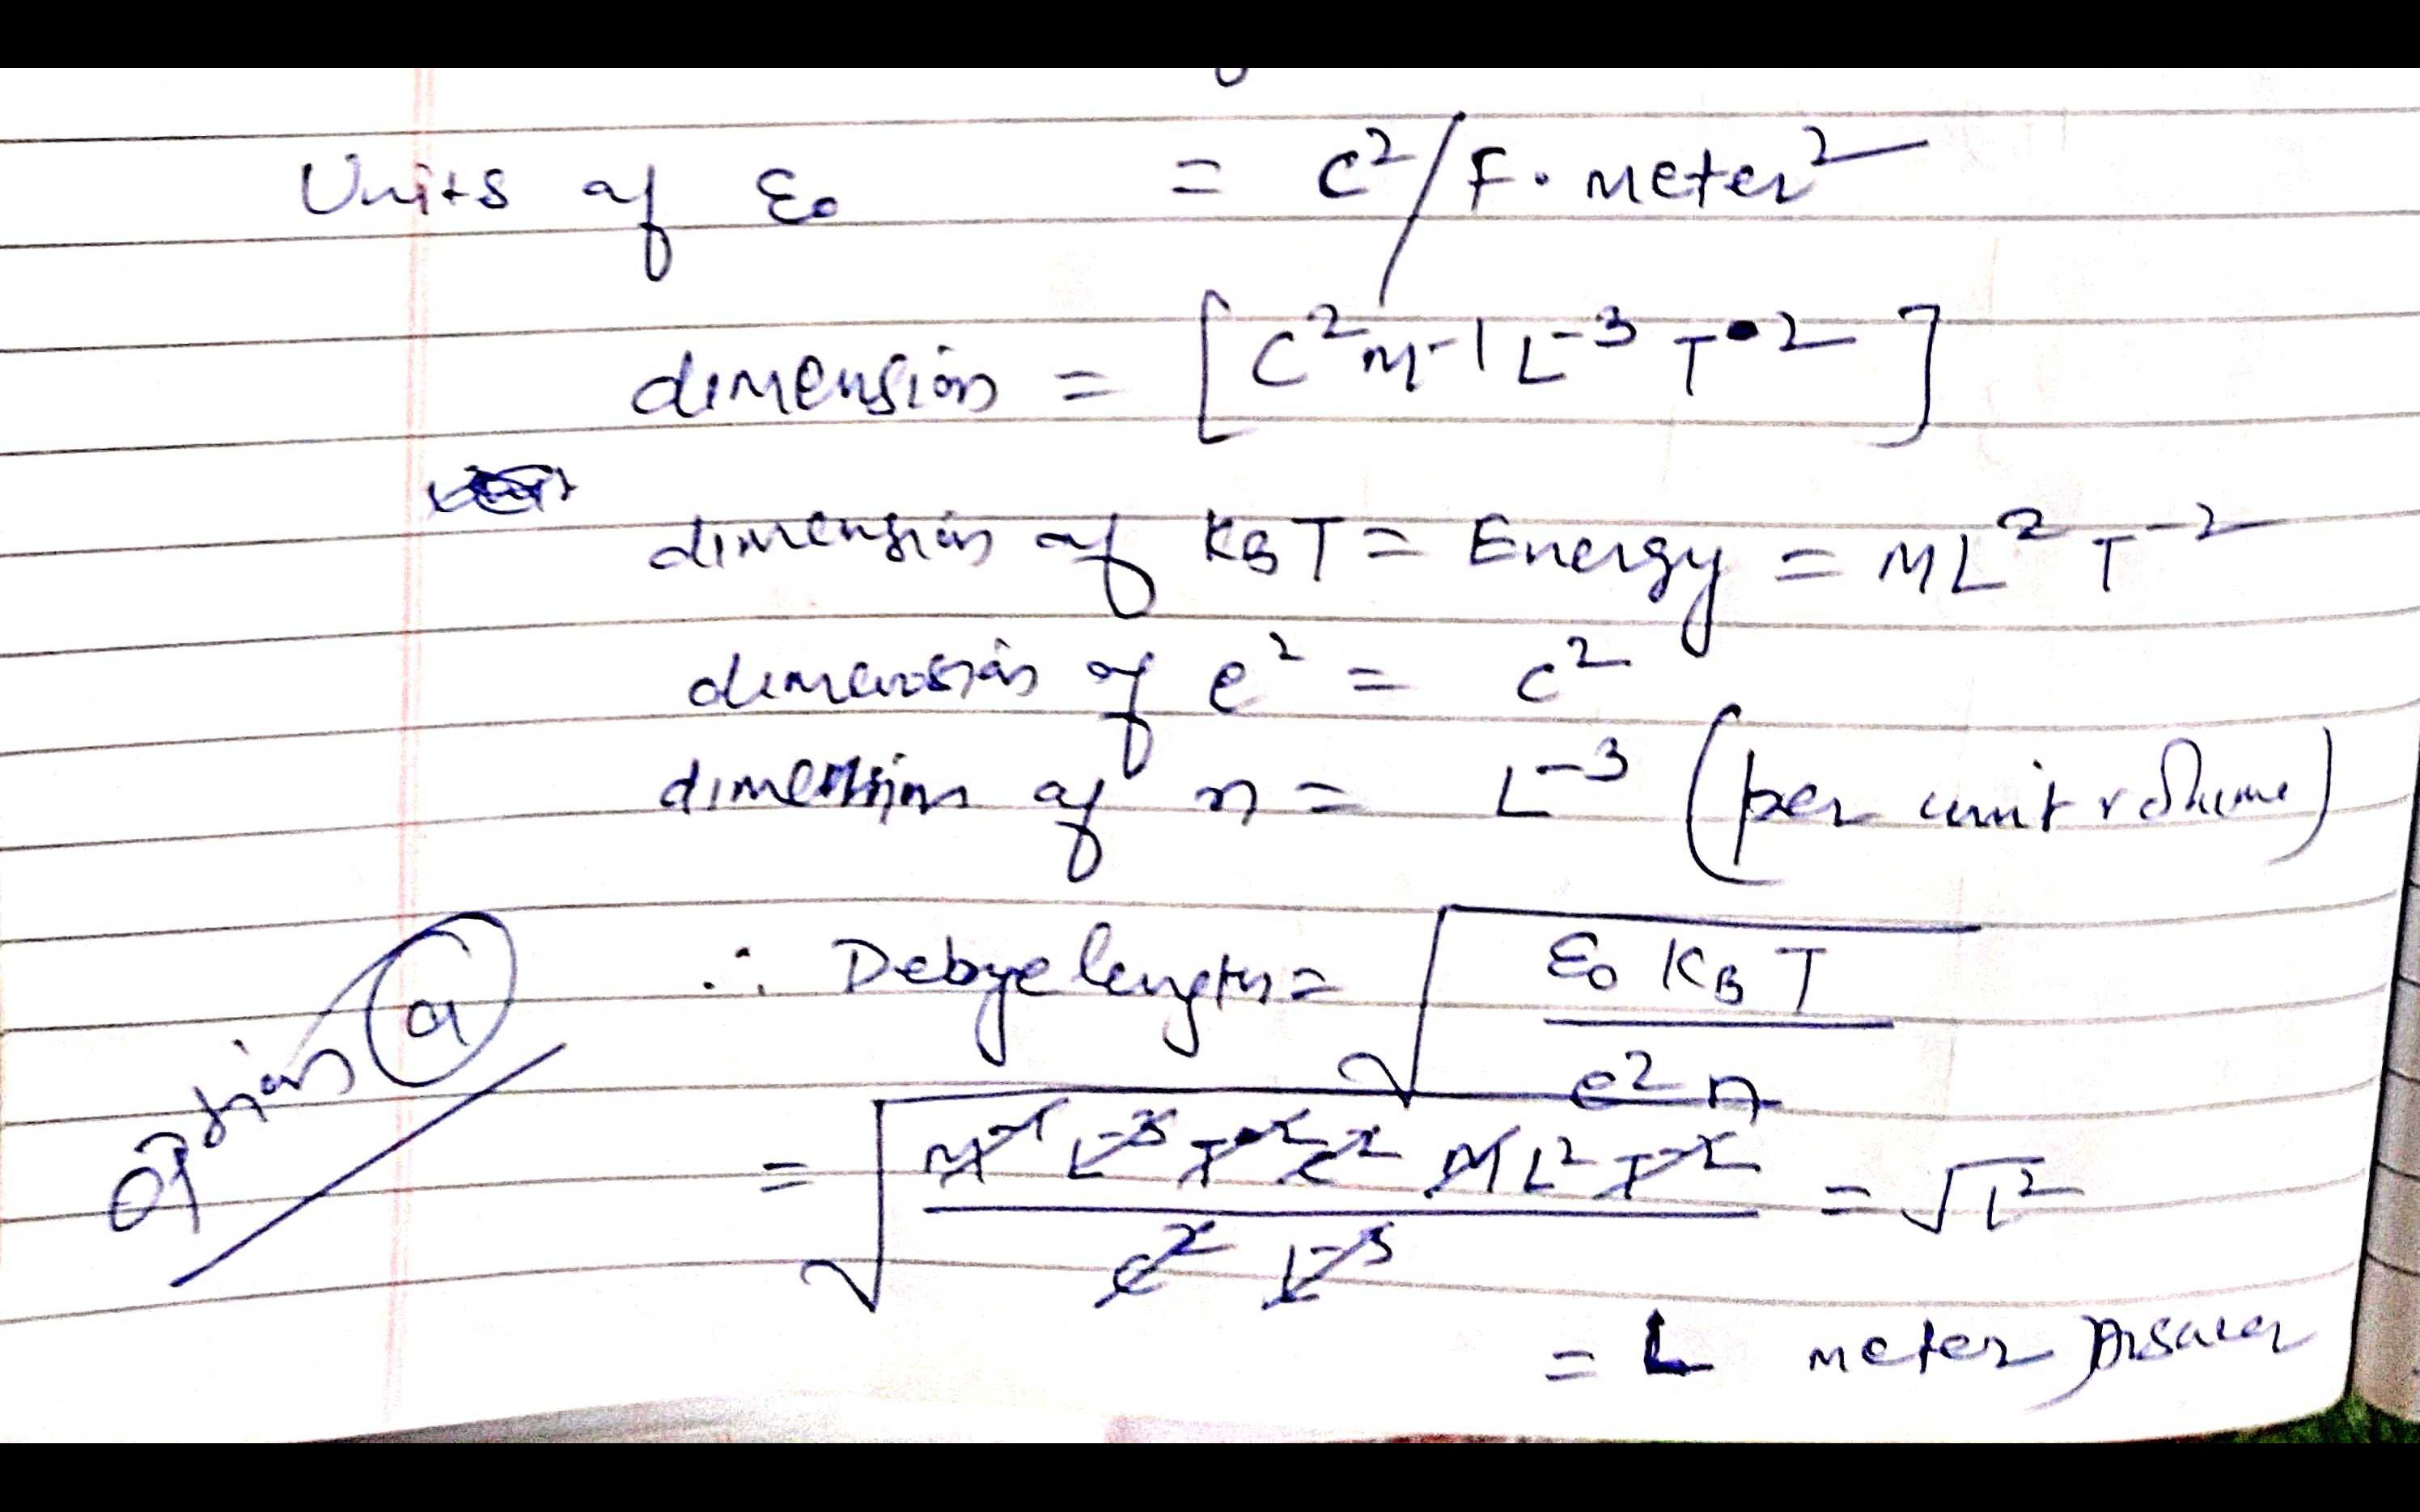 Units of ε₀ = C²/F. meter²
dimension = [C² M⁻¹ L⁻³ T²]
dimension of KBT = Energy = ML² T⁻²
dimension of e² = C²
dimension of n = L⁻³ (per unit volume)
∴ Debye length = √(ε₀ KB T / e² n)
= √(M⁻¹ L⁻³ T² C² M L² T⁻² / C² L⁻³) = √L²
= L meter Answer
Option (a)